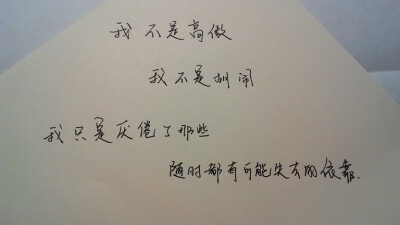 我不是高傲
我不是胡闹
我只是厌倦了那些
随时都有可能失去的依靠.